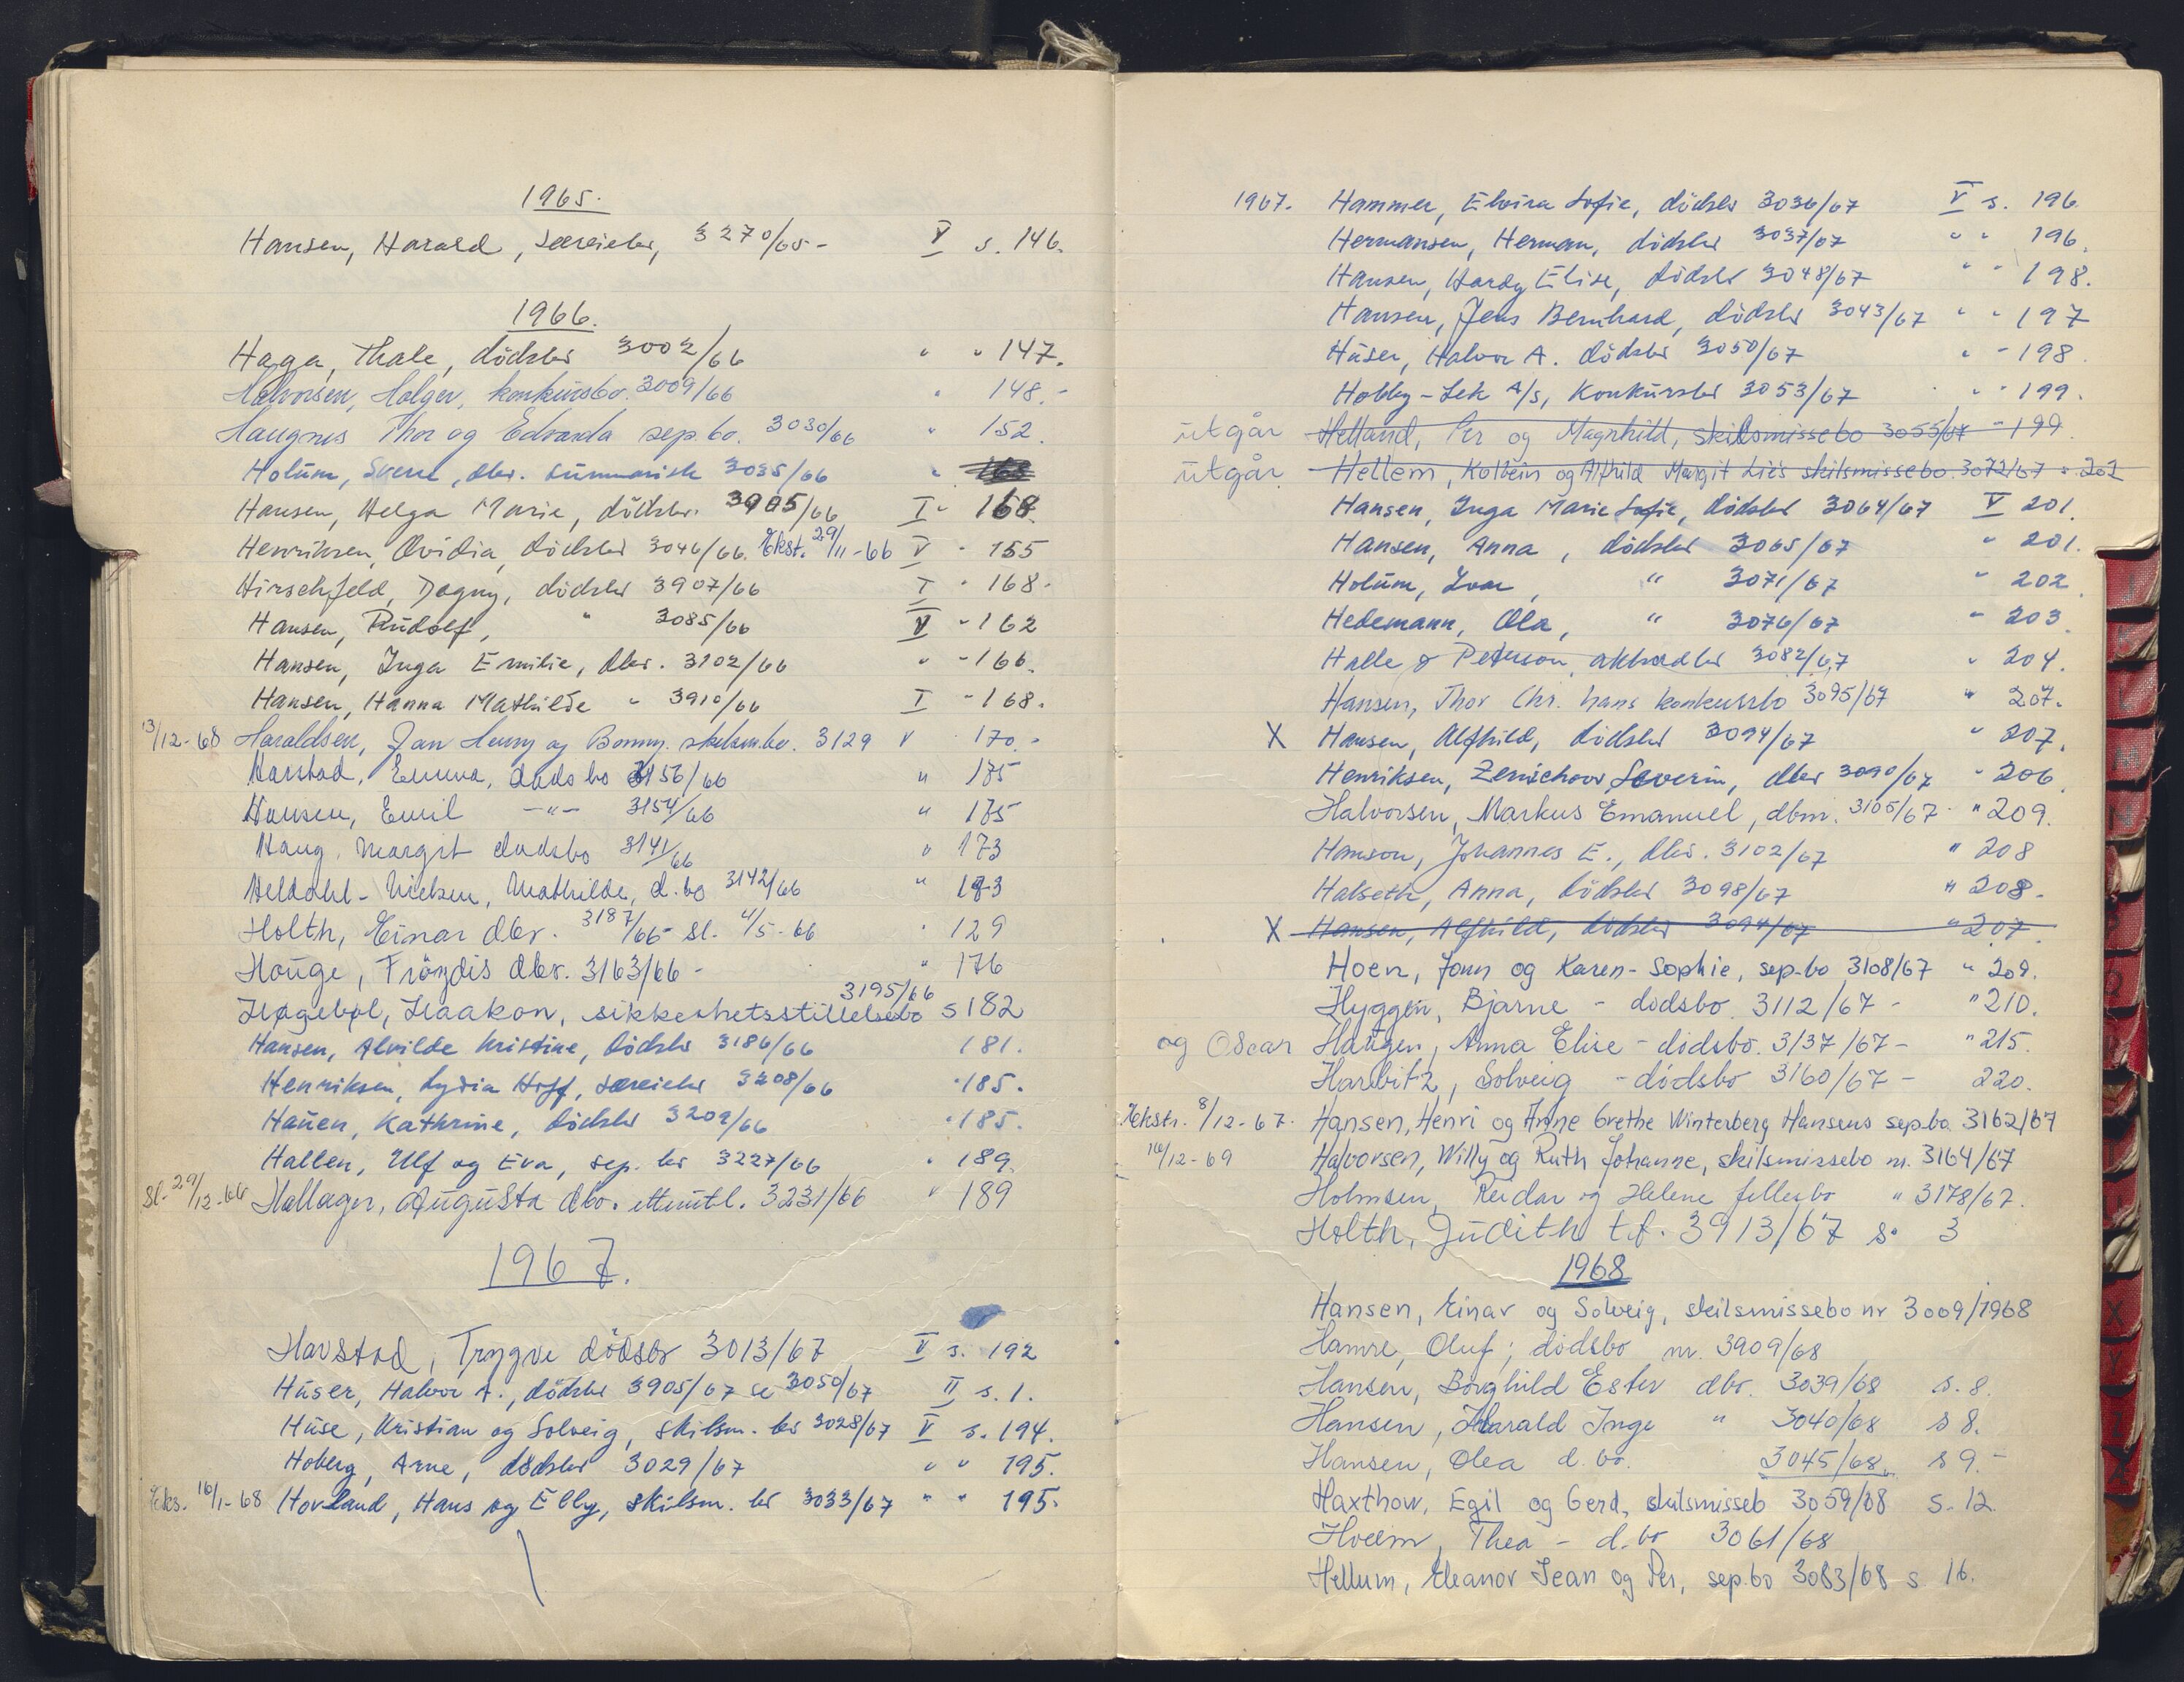 1965.
Hansen, Harald, særeiebo, 3270/65- V s. 146.
1966.
Haga, Thale, dödsbo 3002/66 " " 147.
Halvorsen, Holger, konkursbo. 3009/66 " 148.-
Haugnes Thor og Edvarda sep.bo. 3030/66 " 152.
Holum, Sverre, dbo. summarisk 3035/66 "
Hansen, Helga Marie, dödsbo. 3905/66 I " 168.
Henriksen, Ovidia, dödsbo 3046/66. Ekst. 29/11-66 V " 155
Hirschfeld, Dagny, dödsbo 3907/66 I " 168.
Hansen, Rudolf, " 3085/66 V - 162
Hansen, Inga Emilie, dbo. 3102/66 " - 166.
Hansen, Hanna Mathilde " 3910/66 I - 168.
13/12-68 Haraldsen, Jan Henry og Bonny. skilsm.bo. 3129 V 170.-
Harstad, Emma, dødsbo 3156/66 " 175
Hansen, Emil -"- 3154/66 " 175
Haug, Margit dødsbo 3141/66 " 173
Heldahl-Nielsen, Mathilde, d.bo 3142/66 " 173
Holth, Einar dbo. 3187/65 sl. 4/5-66 " 129
Houge, Fröydis dbo. 3163/66 - " 176
Hagebøl, Haakon, sikkerhetsstillelsebo 3195/66 s 182
Hansen, Alvilde Kristine, dödsbo 3186/66 181.
Henriksen, Lydia Hoff, særeiebo 3208/66 " 185.
Hauen, Kathrine, dödsbo 3209/66 " 185.
Hallen, Ulf og Eva, sep. bo 3227/66 " 189.
Sl. 29/12-66 Hallager, Augusta dbo. ettermtl. 3231/66 " 189
1967.
Havstad, Trygve dödsbo 3013/67 V s. 192
Huser, Halvor A., dödsbo 3905/67 se 3050/67 II s. 1.
Huse, Kristian og Solveig, skilsm. bo 3028/67 V s. 194.
Hoberg, Arne, dödsbo 3029/67 " " 195.
Eks. 16/1-68 Hovland, Hans og Elly, skilsm. bo 3033/67 " " 195.
1967. Hammer, Elvira Sofie, dödsbo 3036/67 V s. 196
Hermansen, Herman, dödsbo 3037/67 " " 196.
Hansen, Hardy Elise, dödsbo 3048/67 " " 198.
Hansen, Jens Bernhard, dödsbo 3043/67 " " 197
Huser, Halvor A. dödsbo 3050/67 " - 198.
Hobby-Lek A/s, Konkursbo 3053/67 " " 199.
utgår Helland, Per og Magnhild, skilsmissebo 3055/67 " 199.
utgår Hellem, Kolbein og Alfhild Margit Lies skilsmissebo. 3072/67 s. 202
Hansen, Inga Marie Sofie, dödsbo 3064/67 V 201.
Hansen, Anna, dödsbo 3065/67 " 201.
Holum, Ivar, " 3071/67 " 202.
Hedemann, Ola, " 3076/67 " 203.
Halle & Peterson, akkordbo 3082/67 " 204.
Hansen, Thor Chr. hans konkursbo 3095/67 " 207.
X Hansen, Alfhild, dödsbo 3094/67 " 207.
Henriksen, Severin, dbo 3090/67 " 206.
Halvorsen, Markus Emanuel, dbm. 3105/67 - " 209.
Hanson, Johannes E., dbo. 3102/67 " 208
Halseth, Anna, dödsbo 3098/67 " 208.
X Hansen, Alfhild, dödsbo 3094/67 " 207.
Hoen, Jonn og Karen-Sophie, sep.bo 3108/67 " 209.
Hyggen, Bjarne - dødsbo. 3112/67 - " 210.
og Oscar Haugen, Anna Elise - dødsbo. 3137/67 - " 215.
Harbitz, Solveig - dødsbo 3160/67 - 220.
Ekstr. 8/12-67. Hansen, Henri og Anne Grethe Winterberg Hansens sep.bo. 3162/67
16/12-69 Halvorsen, Willy og Ruth Johanne, skilsmissebo nr. 3164/67
Holmsen, Reidar og Helene fellesbo " 3178/67.
Holth, Judith t.f. 3913/67 s. 3
1968
Hansen, Einar og Solveig, skilsmissebo nr 3009/1968
Hamre, Oluf; dødsbo nr. 3909/68
Hansen, Borghild Ester dbo. 3039/68 s. 8.
Hansen, Harald Inge " 3040/68 s 8.
Hansen, Olea d. bo. 3045/68. s 9.-
Haxthow, Egil og Gerd, skilsmisseb 3059/68 s. 12.
Hvelm, Thea - d. bo 3061/68
Hellum, Eleanor Jean og Per, sep.bo 3083/68 s 16.